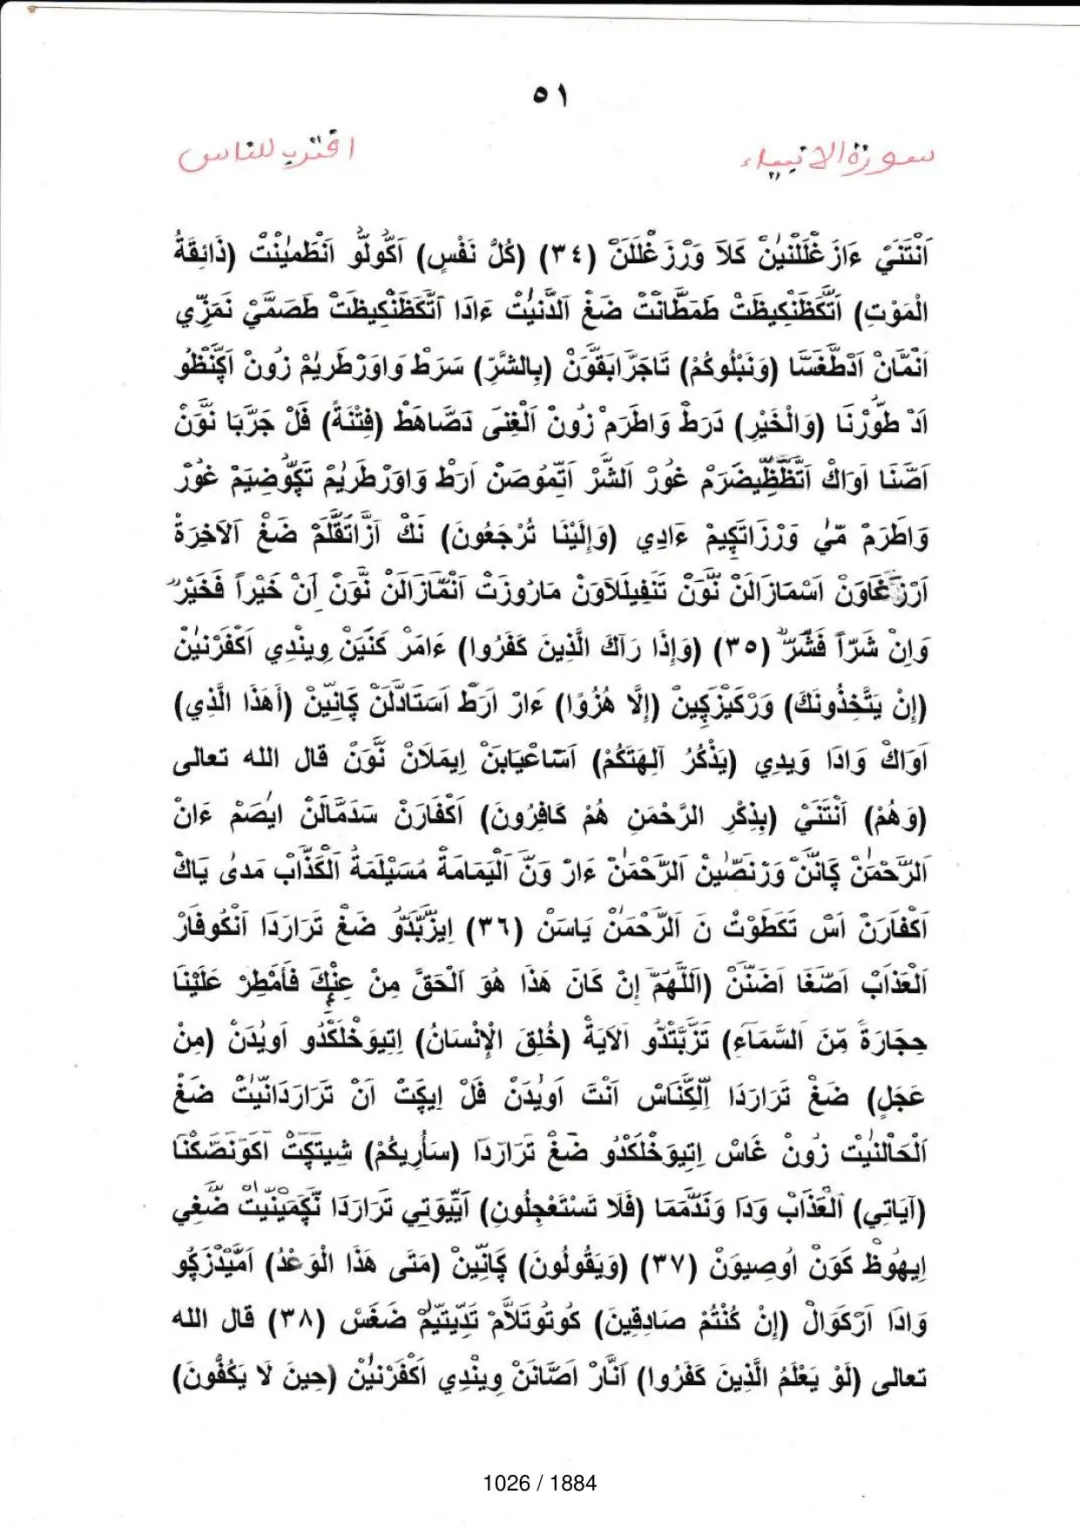 ٥١
سورة الانبياء اقترب للناس
اَنْتَنَيْ ءَازَغْلَلْنيٰنْ كَلاَ وَرْزَغْلَلَنْ (٣٤) (كُلُّ نَفْسٍ) اَكُولُّو اَنْطَمِيٰنْتْ (ذَائِقَةُ
الْمَوْتِ) اَتَّكَظَنْكِيظَتْ طَمَطَّانَتْ ضَغْ اَلدُّنيٰتْ ءَادَا اَتَّكَظَنْكِيظَتْ طَصَمَّيْ نَمَزِّي
اَنْمَّانْ اَدْطَّغَسَّا (وَنَبْلُوكُمْ) تَاجَرَّابَقَّوَنْ (بِالشَّرِّ) سَرَطْ وَاوَرْطَريٰمْ زُونْ اَكِّنْظُو
اَدْ طَوُّرْنَا (وَالْخَيْرِ) دَرَطْ وَاطَرَمْ زُونْ اَلْغِنَى دَصَّاهَطْ (فِتْنَةً) فَلْ جَرَّبَا نَّوَنْ
اَضَّنَا اَوَاكْ اَتَّظَّظِيضَرَمْ غُورْ اَلشَّرْ اَتَّمُوصَنْ اَرَطْ وَاوَرْطَريٰمْ تَكُّوضِيَمْ غُورْ
وَاطَرَمْ مِّيٰ وَرْزَاتَكِيمْ ءَادِي (وَإِلَيْنَا تُرْجَعُونَ) نَكْ اَزَّاتَقَّلَمْ ضَغْ اَلآخِرَةْ
اَرْزَغَاوَنْ اَسْمَازَالَنْ نَّوَنْ تَنْفِيلَلاَوَنْ مَارُوزَتْ اَنْمَّازَالَنْ نَّوَنْ اَنْ خَيْراً فَخَيْرٌ
وَإِنْ شَرّاً فَشَرٌّ (٣٥) (وَإِذَا رَآكَ الَّذِينَ كَفَرُوا) ءَامَرْ كَنَيَنْ وِينْدِي اَكْفَرْنيٰنْ
(إِنْ يَتَّخِذُونَكَ) وَرْكَيْزَكِينْ (إِلَّا هُزُوًا) ءَارْ اَرَطْ اَسَتَادَّلَنْ كَانِّينْ (أَهَذَا الَّذِي)
اَوَاكْ وَادَا وَيدِي (يَذْكُرُ آلِهَتَكُمْ) اَسَّاعْيَابَنْ اِيمَلاَنْ نَّوَنْ قال الله تعالى
(وَهُمْ) اَنْتَنَيْ (بِذِكْرِ الرَّحْمَنِ هُمْ كَافِرُونَ) اَكْفَارَنْ سَدَمَّالَنْ اِيصَمْ ءَانْ
اَلرَّحْمٰنْ كَانَّنْ وَرْنَصِّينْ اَلرَّحْمٰنْ ءَارْ وَنَّ اَلْيَمَامَةْ مُسَيْلِمَةُ اَلْكَذَّابْ مَدىٰ يَاكْ
اَكْفَارَنْ اَسْ تَكَطَوْتْ نَ اَلرَّحْمٰنْ يَاسَنْ (٣٦) اِيزَّبَّدُو ضَغْ تَرَارَدَا اَنْكُوفَارْ
اَلْعَذَابْ اَصَّغَا اَضَنَّنْ (اَللَّهُمَّ إِنْ كَانَ هَذَا هُوَ اَلْحَقَّ مِنْ عِنْدِكَ فَأَمْطِرْ عَلَيْنَا
حِجَارَةً مِّنَ السَّمَاءِ) تَزَّبَّتْدُو الآيَةْ (خُلِقَ الْإِنْسَانُ) اِتِيوَخْلَكْدُو اَويٰدَنْ (مِنْ
عَجَلٍ) ضَغْ تَرَارَدَا اِلِّكْنَاسْ اَنْتَ اَويٰدَنْ فَلْ اِيكِتْ اَنْ تَرَارَدَانِّيٰتْ ضَغْ
اَلْحَالْنيٰتْ زُونْ غَاسْ اِتِيوَخْلَكْدُو ضَغْ تَرَارَدَا (سَأُرِيكُمْ) شِيتَكِتْ اَكَوْنَصَّكْنَا
(آيَاتِي) اَلْعَذَابْ وَدَا وَنَدَّمَمَا (فَلَا تَسْتَعْجِلُونِ) اَيِّيوَتِي تَرَارَدَا نَّكِمِينِيتْ ضَغِي
اِيهُوظْ كَوَنْ اُوصِيوَنْ (٣٧) (وَيَقُولُونَ) كَانِّينْ (مَتَى هَذَا الْوَعْدُ) اَمَّيْدْزَكُو
وَادَا اَرْكَوَالْ (إِنْ كُنْتُمْ صَادِقِينَ) كُوتُوتَلاَّمْ تَدِّيتِيَّمْ ضَغَسْ (٣٨) قال الله
تعالى (لَوْ يَعْلَمُ الَّذِينَ كَفَرُوا) اَنَّارْ اَصَّانَنْ وِينْدِي اَكْفَرْنيٰنْ (حِينَ لَا يَكُفُّونَ)
1026 / 1884